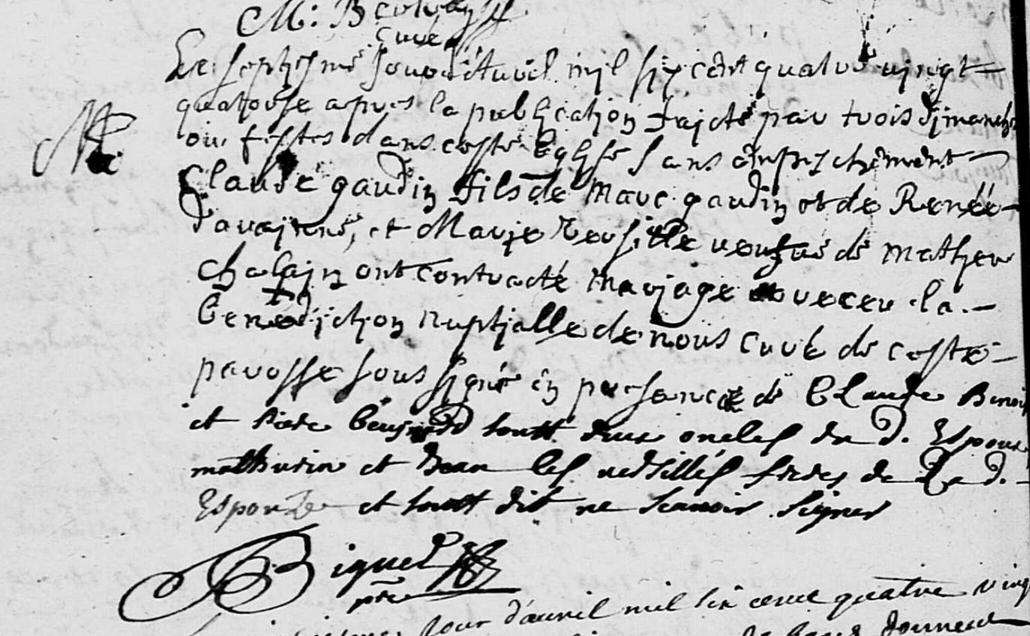 curé
Le septiesme jour d'avril mil six cent quatre vingt
quatorse apres la publication faicte par trois dimanches
ou festes dans ceste Eglise sans empeschement
Claude gaudin fils de Marc gaudin et de Renée
et Marie veufve de mathieu
ont contracté mariage receu la
benediction nuptialle de nous curé de ceste
paroisse soussigné en presence de Claude
et tout deux oncles du d. Espoux
mathurin et Jean les freres de La d.
Espouze et tout dit ne scavoir signer
ptre
jour d'avril mil six cens quatre ving